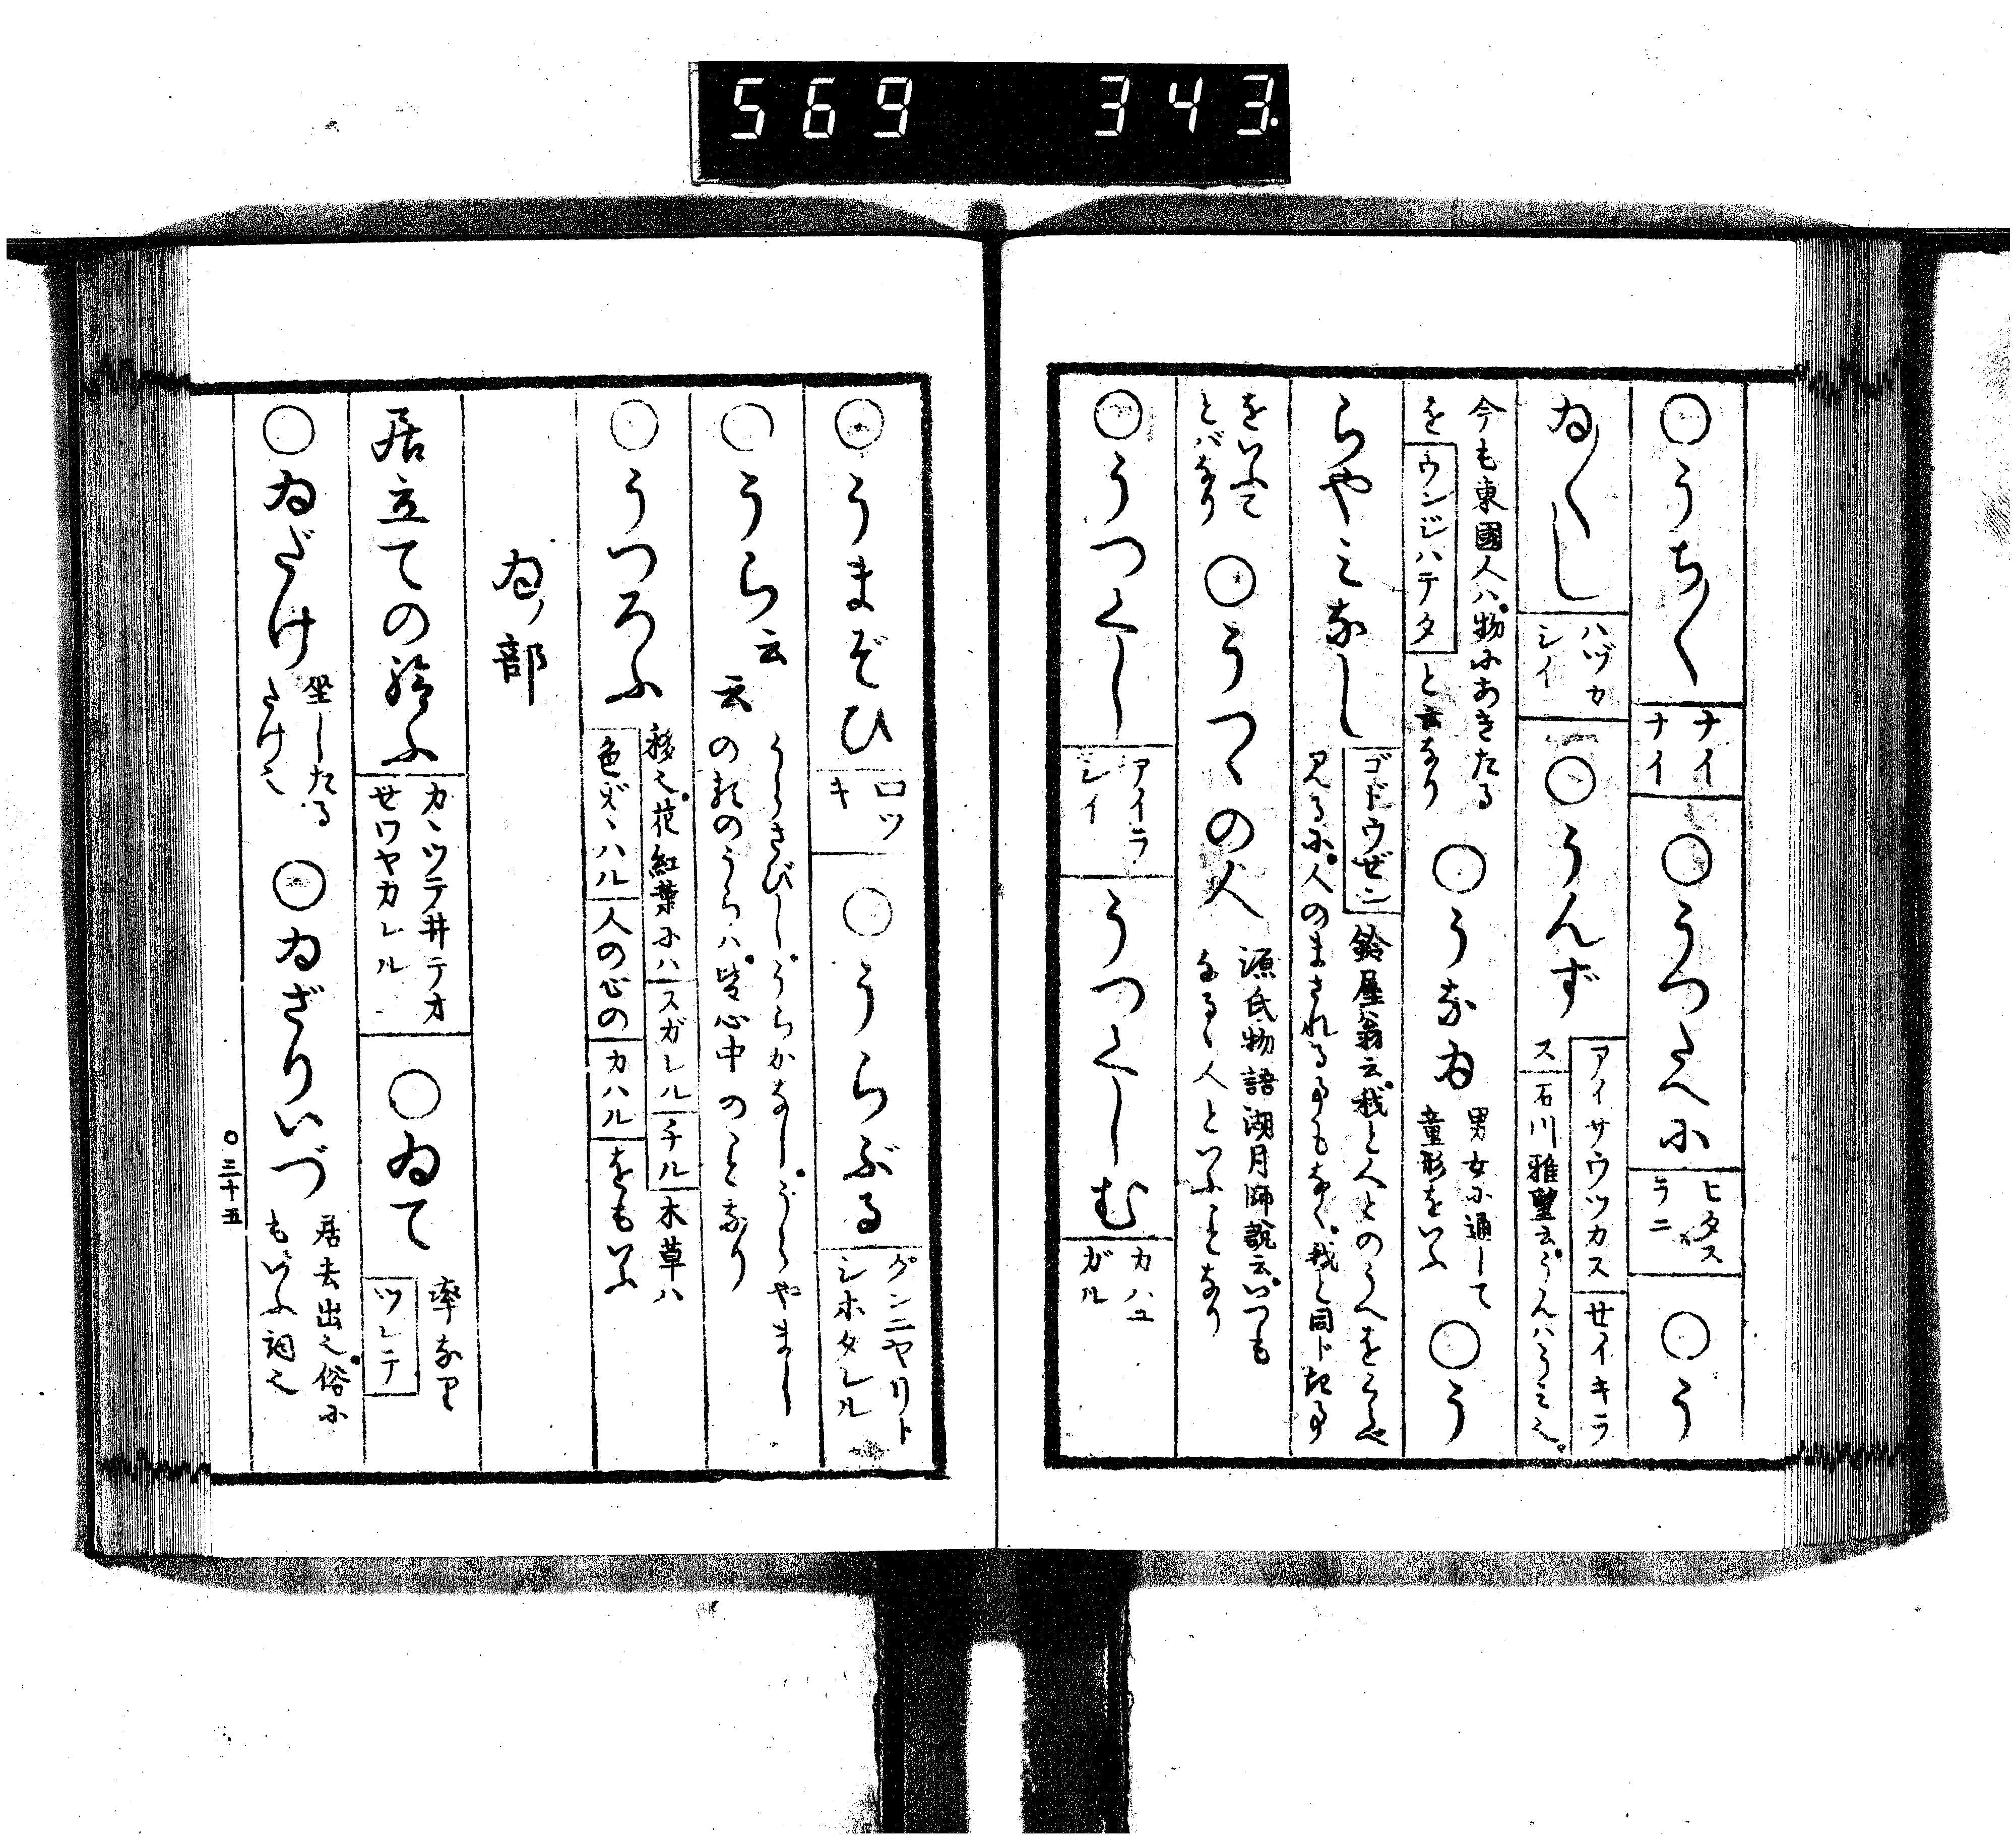 569 343.
○うち〱 ナイナイ ○うつたへに ヒタスラニ ○う
ゐ〱し ハヅカシイ ○うんず アイサウツカス セイキラス 石川雅望云。うんハうミ也。
今も東國人ハ。物にあきたるを ウンジハテタ と云なり ○うなゐ 男女に通して童形をいふ ○う
らやミなし ゴドウゼン 鈴屋翁云。我と人とのうへをくらべ見るに。人のまされる事もなく。我と同ド なる事
をいふことバなり ○うつゝの人 源氏物語湖月師説云。いつもなるゝ人といふことなり
○うつくし アイラシイ うつくしむ カハユガル
○うまぞひ ロツキ ○うらぶる グンニヤリトシホタレル
○うら云云 うらさびし。うらかなし。うらやまし云云の類のうらハ。皆心中のことなり
○うつろふ 移也。花紅葉にハ スガレル チル 木草ハ 色ガヽハル 人の心の カハル をもいふ
ゐノ部
居立ての給ふ カヽツテ井テオセワヤカレル ○ゐて 率なり ツレテ
○ゐだけ 坐したるたけ也 ○ゐざりいづ 居去出也。俗にもいふ詞也
○三十五